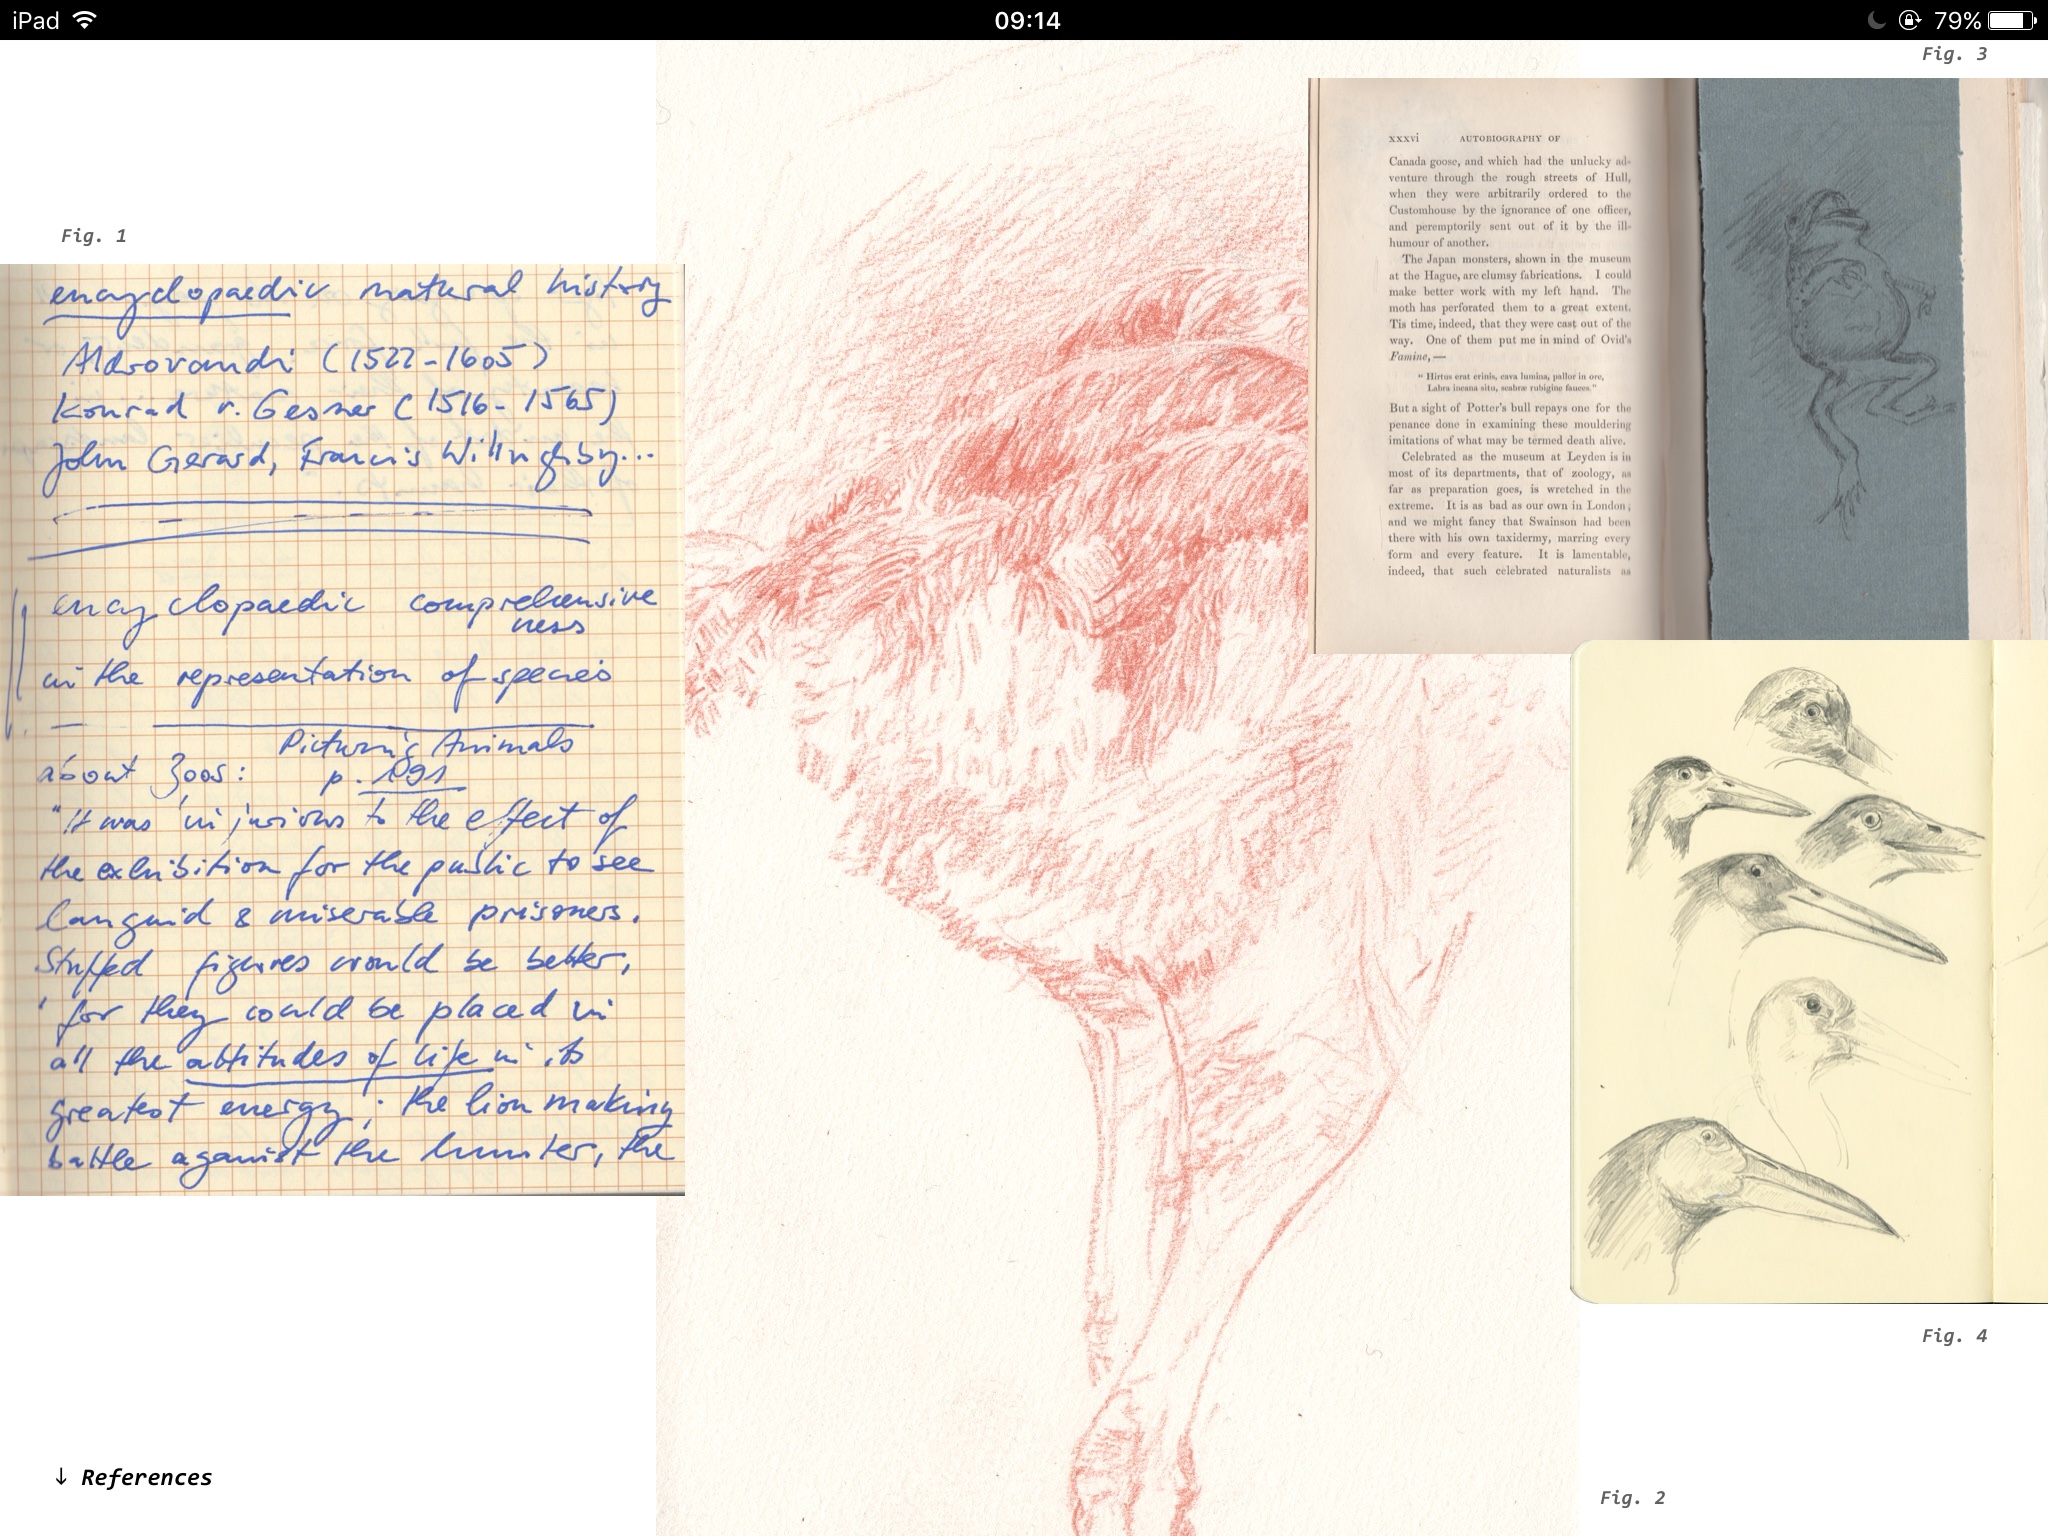 iPad
09:14
79%
Fig. 1
encyclopaedic natural history
Aldrovandi (1522-1605)
Konrad v. Gesner (1516-1565)
John Gerard, Francis Willughby...
encyclopaedic comprehensive
ness
in the representation of species
Picturing Animals
about Zoos: p. 191
"It was 'injurious to the effect of
the exhibition for the public to see
languid & miserable prisoners.
Stuffed figures would be better,
'for they could be placed in
all the attitudes of life in its
greatest energy': the lion making
battle against the hunter, the
↓ References
Fig. 3
xxxvi AUTOBIOGRAPHY OF
Canada goose, and which had the unlucky ad-
venture through the rough streets of Hull,
when they were arbitrarily ordered to the
Customhouse by the ignorance of one officer,
and peremptorily sent out of it by the ill-
humour of another.
The Japan monsters, shown in the museum
at the Hague, are clumsy fabrications. I could
make better work with my left hand. The
moth has perforated them to a great extent.
Tis time, indeed, that they were cast out of the
way. One of them put me in mind of Ovid's
Famine,—
"Hirtus erat crinis, cava lumina, pallor in ore,
Labra incana situ, scabræ rubigine fauces."
But a sight of Potter's bull repays one for the
penance done in examining these mouldering
imitations of what may be termed death alive.
Celebrated as the museum at Leyden is in
most of its departments, that of zoology, as
far as preparation goes, is wretched in the
extreme. It is as bad as our own in London;
and we might fancy that Swainson had been
there with his own taxidermy, marring every
form and every feature. It is lamentable,
indeed, that such celebrated naturalists as
Fig. 4
Fig. 2